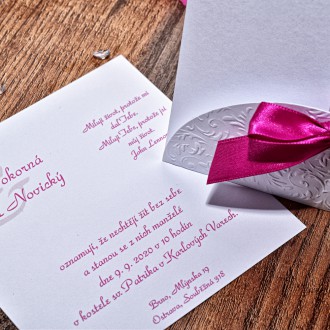 Miluji život, protože mi
dal Tebe.
Miluji Tebe, protože jsi
můj život.
John Lennon
okorná
Novický
oznamují, že nechtějí žít bez sebe
a stanou se z nich manželé
dne 9. 9. 2020 v 10 hodin
v kostele sv. Patrika v Karlových Varech.
Brno, Mlýnská 19
Ostrava, Souběžná 318